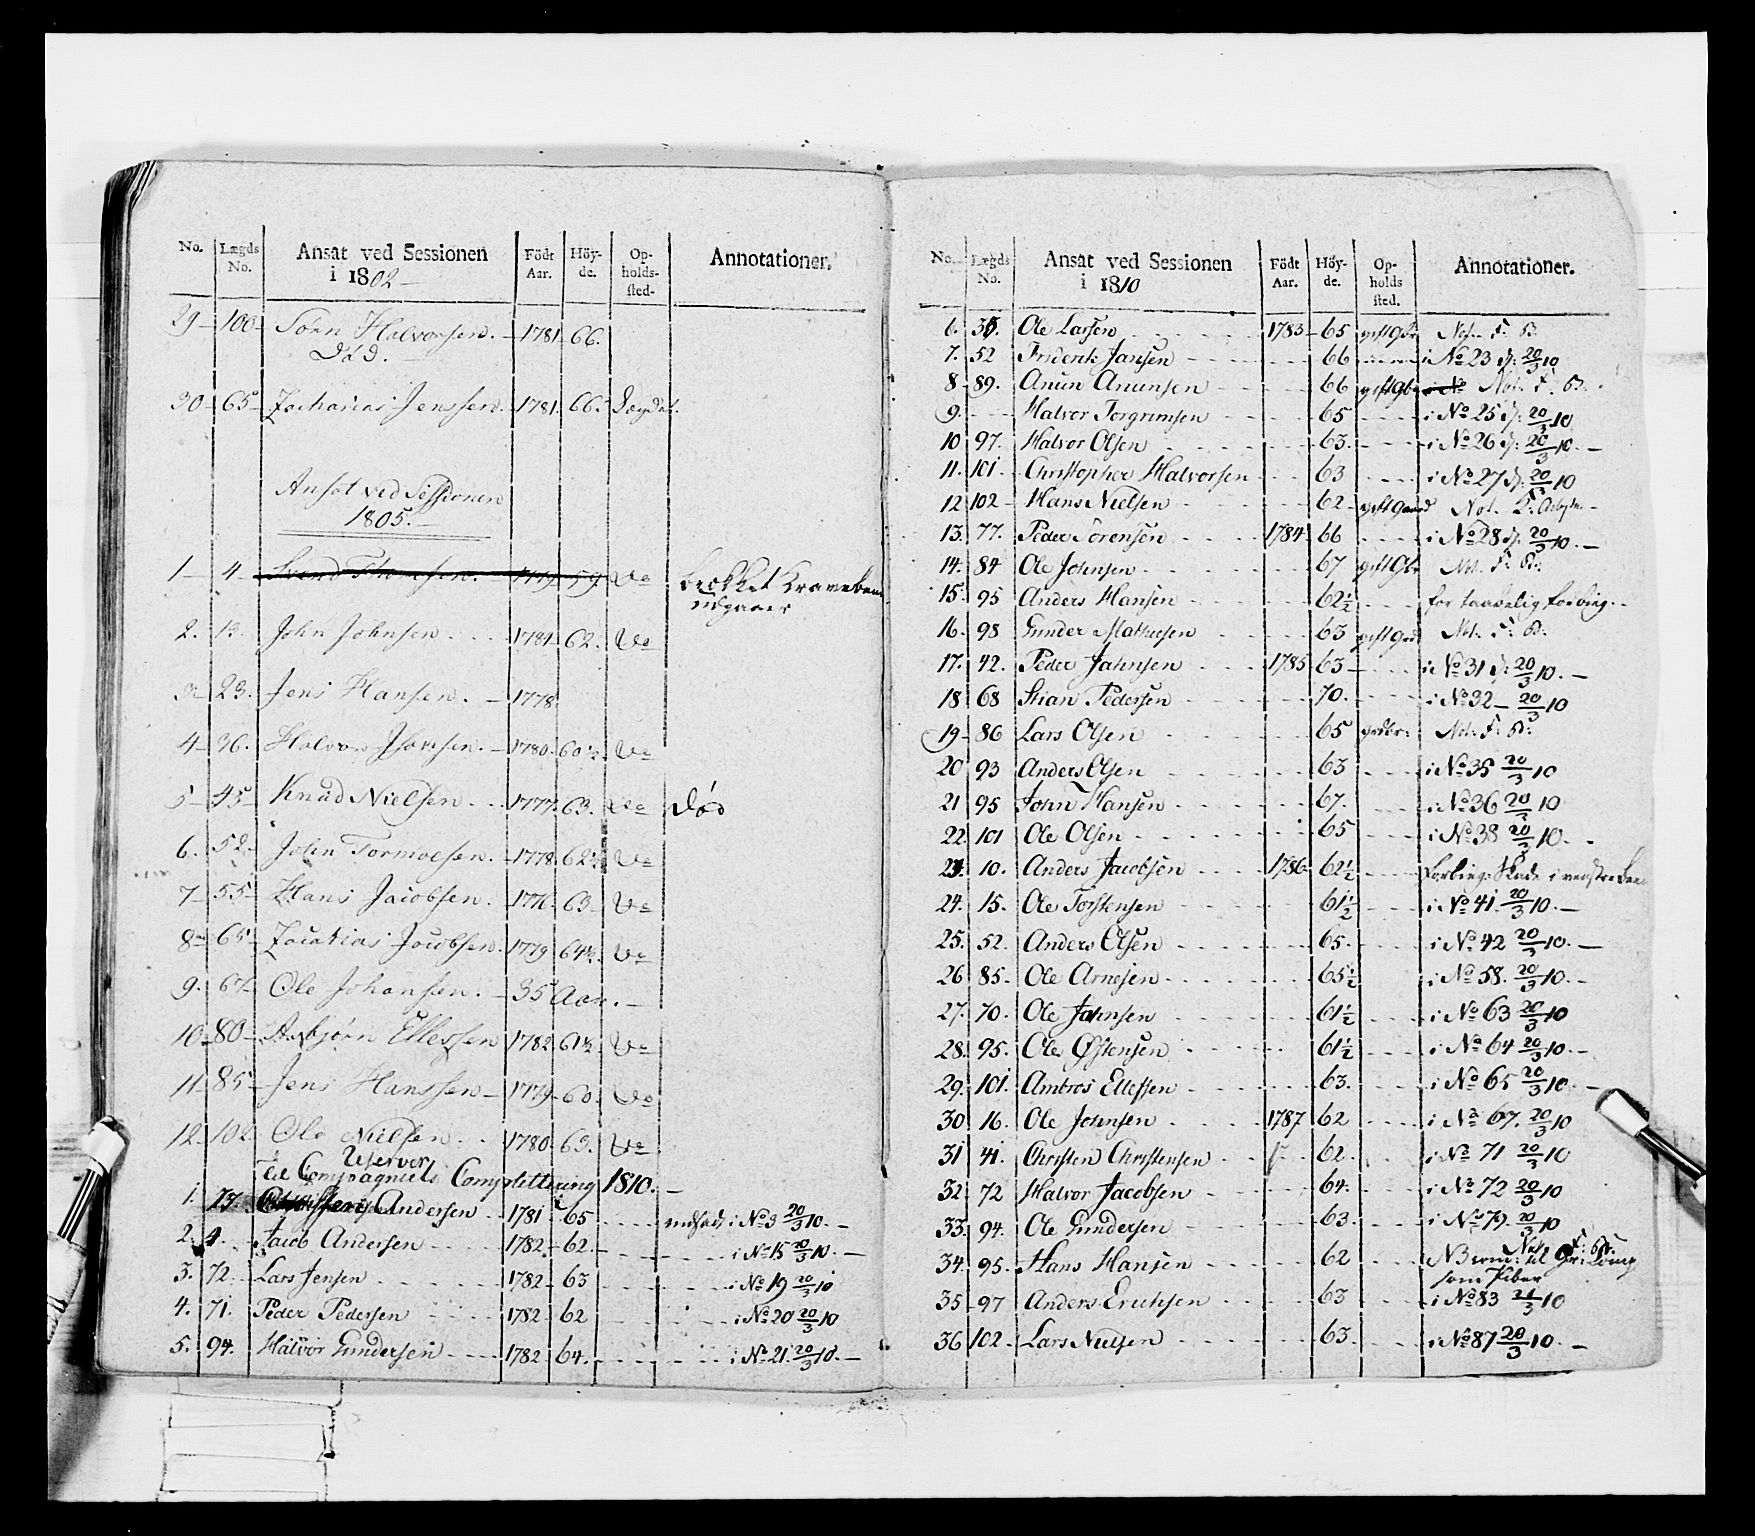 No. Lægds No. Ansat ved Sessionen i 1802 Födt Aar. Höy-de. Op-holds-sted. Annotationer.
29 100 Sørn Halvorsen. 1781 66.
Død.
30 65 Zacharias Jenssen. 1781 66.
Ansat ved Sessionen
1805.
1 4 59 Do brokket Kravebeen
udgaaer
2. 13. John Johnsen 1781 62. Do
3 23. Jens Hansen. 1778
4 36. Halvor 1780 60½ Do
5 45 Knud Nielsen 1777. 63. Do Død
6. 52. John Tormoesen. 1778 62½ Do
7 55 Hans Jacobsen. 1776 63 Do
8 65 Zacarias Jacobsen. 1779 64½ Do
9. 67 Ole Johansen. 35 Aar.
10 80 Asbjørn Ellessen 1782 61½ Do
11 85 Jens Hanssen 1779 60. Do
12. 102 Ole Nielsen 1780 63. Do
Reserver
Til Compagniets Complettering 1810.
1. 73. Andersen 1781 65 indsat i No 3 20/3 10.
2. 1. Jacob Andersen 1782 62 i No 15 20/3 10.
3. 72 Lars Jensen 1782 63 i No 19 20/3 10
4. 71. Peder Pedersen 1782 62 i No 20 20/3 10
5. 94. Halvor Gundersen 1782 64. i No 21. 20/3 10.
No. Lægds No. Ansat ved Sessionen i 1810 Födt Aar. Höy-de. Op-holds sted. Annotationer.
6. 35. Ole Larsen 1783 65 Not. F. B.
7. 52 Friderik Jansen 66 i No 23 d: 20/3 10
8 89. Anun Anunsen 66 Not. F. B.
9. Halvor Torgrimsen 65 i No 25 d: 20/3 10
10 97. Halvor Olsen 63. i No 26 d: 20/3 10.
11. 101 Christopher Halvorsen 63 i No 27 d: 20/3 10
12 102 Hans Nielsen 62 Not.
13. 77. Peder Sørensen 1784 66 i No 28 d: 20/3 10.
14. 84 Ole Johnsen 67 Not. F: B:
15. 95 Anders Hansen 62½ for
16. 98 Gunder Mathiesen 63 Not. F: B:
17. 42. Peder Jahnsen 1785 63 i No 31 d: 20/3 10.
18 68 Stian Pedersen 70. i No 32 20/3 10
19 86 Lars Olsen 65 Not: F: B:
20 93 Anders Olsen 63 i No 35 20/3 10
21 95 John Hansen 67. i No 36 20/3 10
22. 101 Ole Olsen 65 i No 38 20/3 10.
23. 10. Anders Jacobsen 1786 62½ Skade i venstre
24. 15. Ole Torstensen 61½ i No 41 20/3 10.
25. 52. Anders Olsen 65. i No 42 20/3 10.
26 85. Ole Arnesen 65½ i No 58. 20/3 10.
27. 70. Ole Jahnsen 61½ i No 63 20/3 10
28. 95. Ole Østensen 61½ i No 64 20/3 10.
29. 101. Ambros Ellessen 63. i No 65 20/3 10.
30 16. Ole Johnsen 1787 62 i No 67. 20/3 10
31 41. Christen Christensen 62. i No 71 20/3 10
32. 72 Halvor Jacobsen 64. i No 72 20/3 10
33. 94. Ole Gundersen 63. i No 79. 20/3 10
34. 95. Hans Hansen 62 Not F: B:
NB
som Piber
35 97 Anders Erichsen 63 i No 83 21/3 10
36 102 Lars Nielsen 63. i No 87 20/3 10.